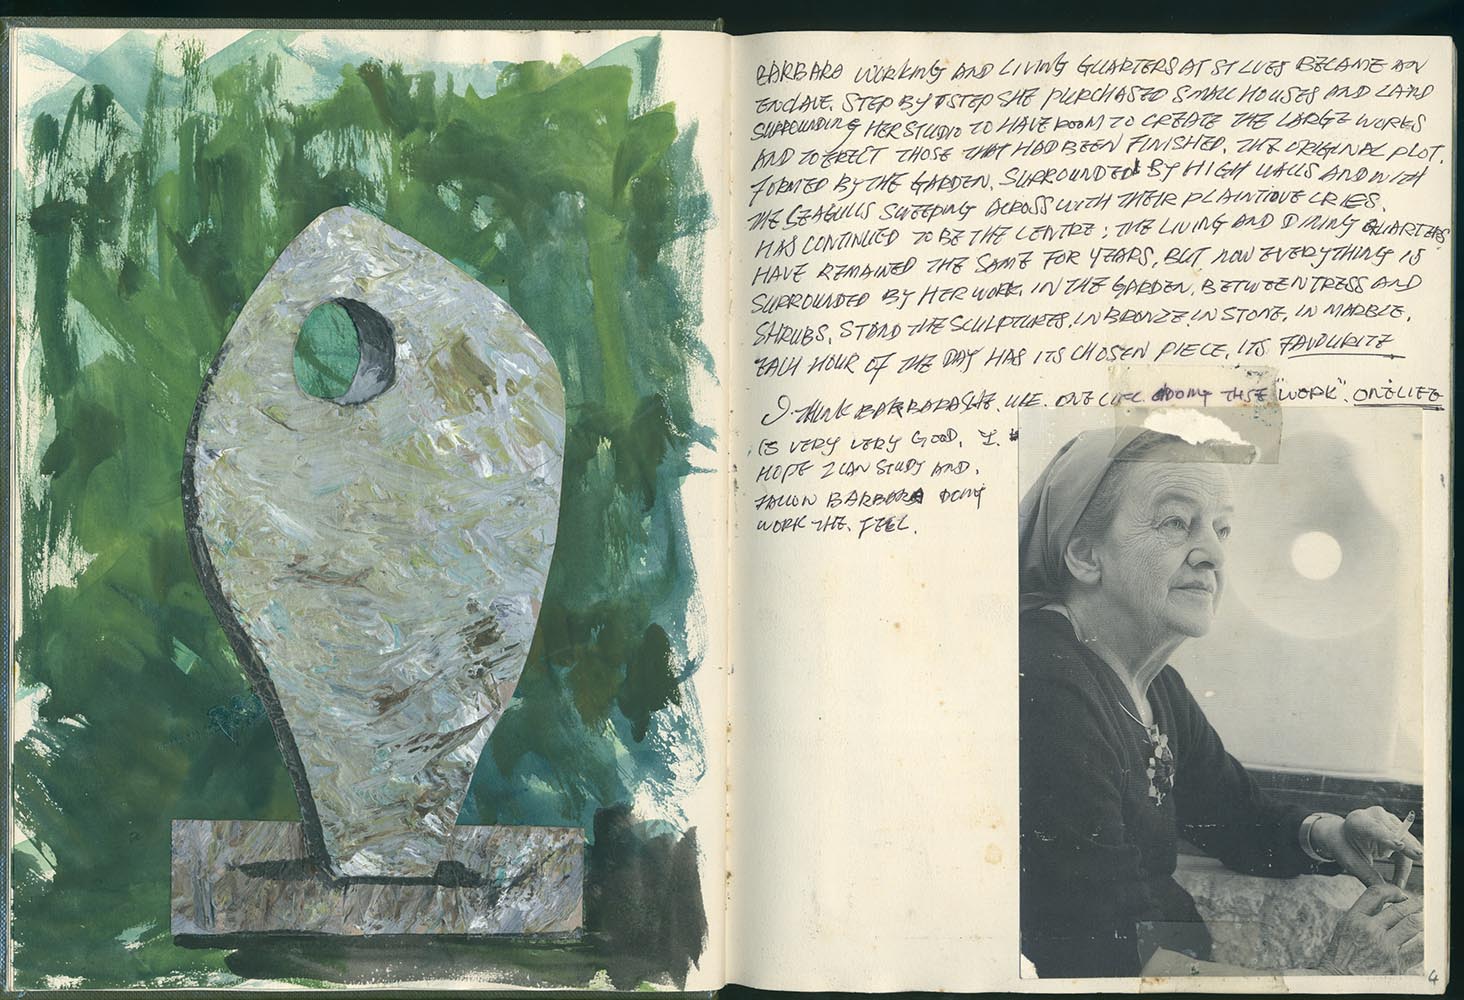 BARBARA WORKING AND LIVING QUARTERS AT ST IVES BECAME AN
ENCLAVE. STEP BY STEP SHE PURCHASED SMALL HOUSES AND LAND
SURROUNDING HER STUDIO TO HAVE ROOM TO CREATE THE LARGE WORKS
AND TO ERECT THOSE THAT HAD BEEN FINISHED. THE ORIGINAL PLOT.
FORMED BY THE GARDEN. SURROUNDED BY HIGH WALLS AND WITH
THE SEAGULLS SWEEPING ACROSS WITH THEIR PLAINTIOVE CRIES.
HAS CONTINUED TO BE THE CENTRE; THE LIVING AND DINING QUARTERS
HAVE REMAINED THE SAME FOR YEARS, BUT NOW EVERYTHING IS
SURROUNDED BY HER WORK. IN THE GARDEN, BETWEEN TRESS AND
SHRUBS, STAND THE SCULPTURES. IN BRONZE. IN STONE, IN MARBLE.
EACH HOUR OF THE DAY HAS ITS CHOSEN PIECE, ITS FAVOURITE
I THINK BARBARA SHE. ONE DOING "WORK". ONE LIFE
IS VERY VERY GOOD, I.
HOPE I CAN STUDY AND.
FALLOW BARBARA DOING
WORK THE. FEEL.
4